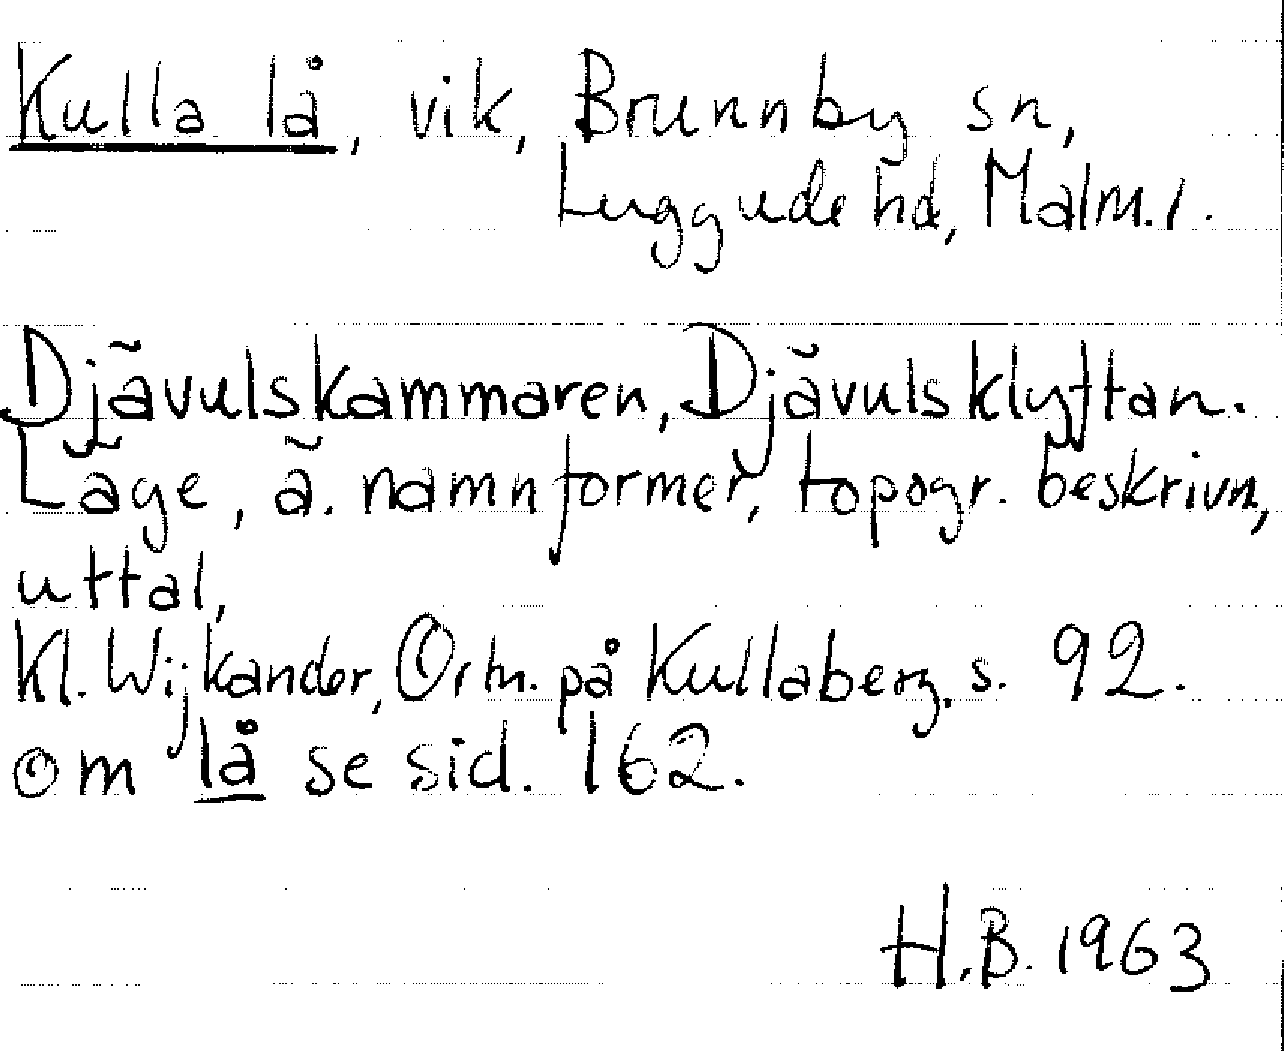 Kulla lå, vik, Brunnby sn,
Luggude hd, Malm. l.
Djävulskammaren, Djävulsklyftan.
Läge, ä. namnformer, topogr. beskrivn,
uttal,
Kl. Wijkander, Ortn. på Kullaberg, s. 92.
om lå se sid. 162.
H.B. 1963